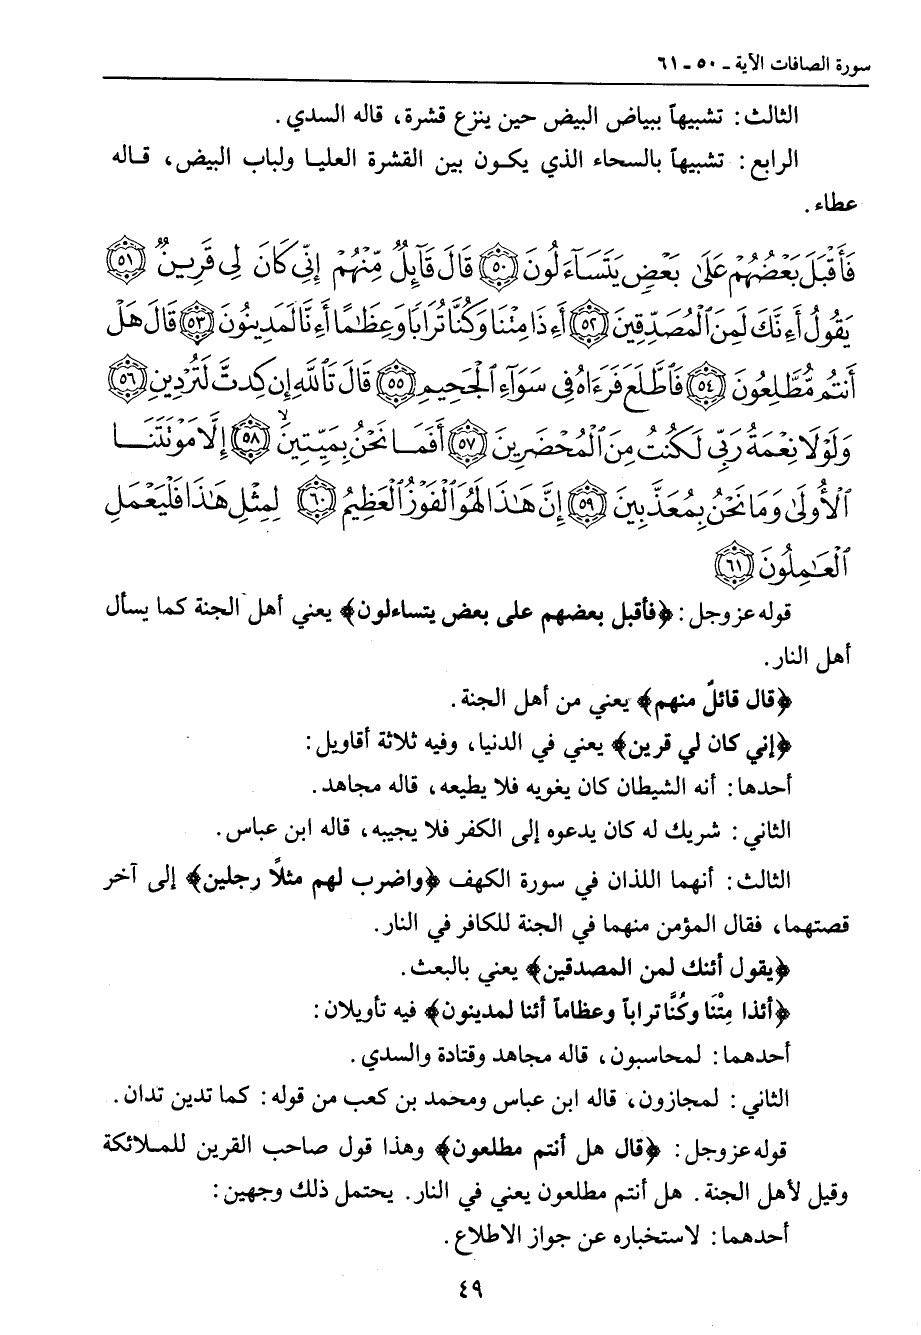 سورة الصافات الآية ـ ٥٠ ـ ٦١
الثالث: تشبيهاً ببياض البيض حين ينزع قشرة، قاله السدي.
الرابع: تشبيهاً بالسحاء الذي يكون بين القشرة العليا ولباب البيض، قاله
عطاء.
فَأَقْبَلَ بَعْضُهُمْ عَلَىٰ بَعْضٍ يَتَسَآءَلُونَ ٥٠ قَالَ قَآئِلٌ مِّنْهُمْ إِنِّى كَانَ لِى قَرِينٌ ٥١
يَقُولُ أَءِنَّكَ لَمِنَ ٱلْمُصَدِّقِينَ ٥٢ أَءِذَا مِتْنَا وَكُنَّا تُرَابًا وَعِظَٰمًا أَءِنَّا لَمَدِينُونَ ٥٣ قَالَ هَلْ
أَنتُم مُّطَّلِعُونَ ٥٤ فَٱطَّلَعَ فَرَءَاهُ فِى سَوَآءِ ٱلْجَحِيمِ ٥٥ قَالَ تَٱللَّهِ إِن كِدتَّ لَتُرْدِينِ ٥٦
وَلَوْلَا نِعْمَةُ رَبِّى لَكُنتُ مِنَ ٱلْمُحْضَرِينَ ٥٧ أَفَمَا نَحْنُ بِمَيِّتِينَ ٥٨ إِلَّا مَوْتَتَنَا
ٱلْأُولَىٰ وَمَا نَحْنُ بِمُعَذَّبِينَ ٥٩ إِنَّ هَٰذَا لَهُوَ ٱلْفَوْزُ ٱلْعَظِيمُ ٦٠ لِمِثْلِ هَٰذَا فَلْيَعْمَلِ
ٱلْعَٰمِلُونَ ٦١
قوله عز وجل: ﴿فأقبل بعضهم على بعض يتساءلون﴾ يعني أهل الجنة كما يسأل
أهل النار.
﴿قال قائلٌ منهم﴾ يعني من أهل الجنة.
﴿إني كان لي قرين﴾ يعني في الدنيا، وفيه ثلاثة أقاويل:
أحدها: أنه الشيطان كان يغويه فلا يطيعه، قاله مجاهد.
الثاني: شريك له كان يدعوه إلى الكفر فلا يجيبه، قاله ابن عباس.
الثالث: أنهما اللذان في سورة الكهف ﴿واضرب لهم مثلاً رجلين﴾ إلى آخر
قصتهما، فقال المؤمن منهما في الجنة للكافر في النار.
﴿يقول أئنك لمن المصدقين﴾ يعني بالبعث.
﴿أئذا مِتْنَا وكُنَّا تراباً وعظاماً أئنا لمدينون﴾ فيه تأويلان:
أحدهما: لمحاسبون، قاله مجاهد وقتادة والسدي.
الثاني: لمجازون، قاله ابن عباس ومحمد بن كعب من قوله: كما تدين تدان.
قوله عز وجل: ﴿قال هل أنتم مطلعون﴾ وهذا قول صاحب القرين للملائكة
وقيل لأهل الجنة. هل أنتم مطلعون يعني في النار. يحتمل ذلك وجهين:
أحدهما: لاستخباره عن جواز الاطلاع.
٤٩